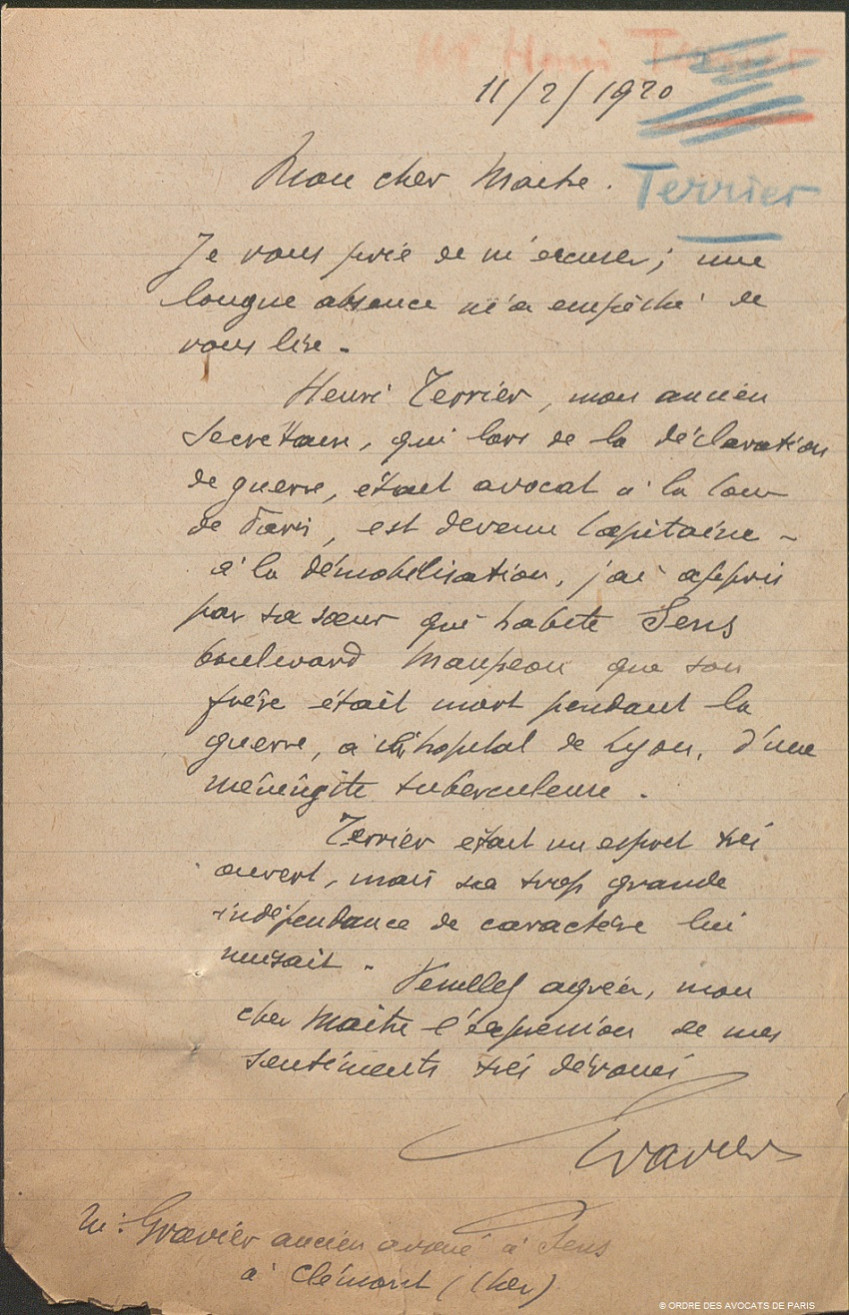 Mr Henri Terrier
11/2/1920
Terrier
Mon cher Maitre.
Je vous prie de m'excuser; une
longue absence m'a empêché de
vous lire.
Henri Terrier, mon ancien
secrétaire, qui lors de la déclaration
de guerre, était avocat à la Cour
de Paris, est devenu Capitaine -
à la démobilisation, j'ai appris
par sa sœur qui habite Sens
boulevard Maupeou que son
frère était mort pendant la
guerre, à l'hopital de Lyon, d'une
méningite tuberculeuse.
Terrier était un esprit très
ouvert, mais sa trop grande
indépendance de caractère lui
nuisait. Veuillez agréer, mon
cher Maitre l'expression de mes
sentiments très dévoués
Gravier
M: Gravier ancien avoué à Sens
à Clémont (Cher)
© ORDRE DES AVOCATS DE PARIS